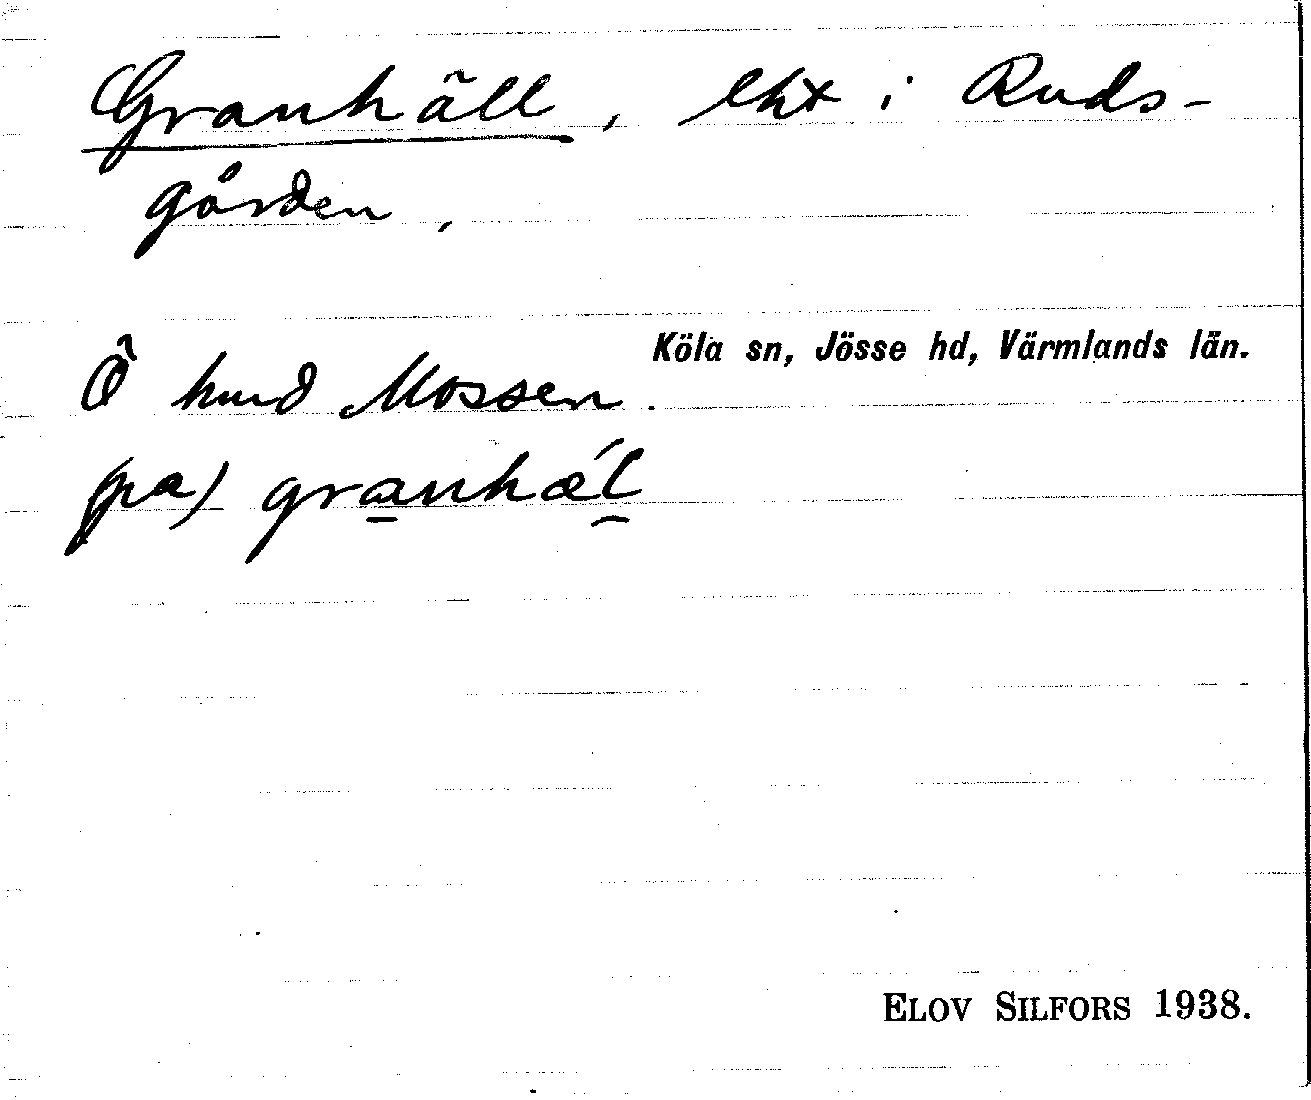 Granhäll, lht i Ruds-
gården,
Köla sn, Jösse hd, Värmlands län.
Ö hund Mossen.
(pa) granhæ´l
ELOV SILFORS 1938.